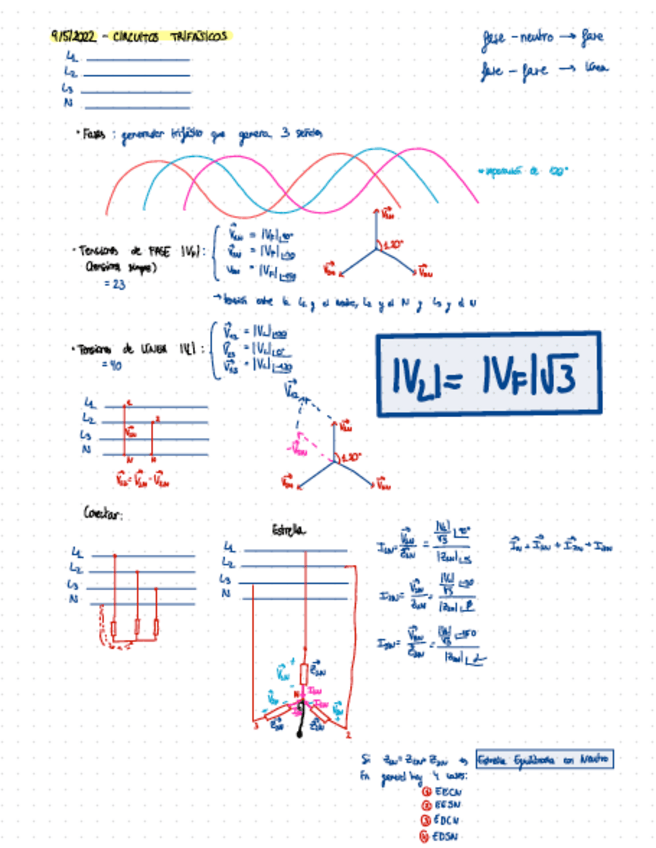 9/5/2022 - CIRCUITOS TRIFÁSICOS
fase - neutro → fase
fase - fase → línea
L1
L2
L3
N
• Fases : generador trifásico que genera 3 señales
separación de 120°
• Tensiones de FASE |VF| :
(tensiones simples)
= 23
V1N = |VF| 90°
V2N = |VF| -30
V3N = |VF| -150
V1N
120°
V3N
V2N
→ tensión entre la L1 y el neutro, L2 y el N y L3 y el N
• Tensiones de LÍNEA |VL| :
= 40
V12 = |VL| 120
V23 = |VL| 0°
= |VL| -120
|VL| = |VF|√3
L1
L2
L3
N
V12 = V1N - V2N
V12
V1N
-V2N
120°
V3N
V2N
Conectar:
Estrella
L1
L2
L3
N
L1
L2
L3
N
V1N
Z1N
I1N
N
3
Z3N
Z2N
2
I1N = V1N / Z1N = |VL| / √3 90° / |Z1N|
I2N = V2N / Z2N = |VL| / √3 -30 / |Z2N|
I3N = V3N / Z3N = |VL| / √3 -150 / |Z3N|
IN = I1N + I2N + I3N
Si Z1N = Z2N = Z3N → Estrella Equilibrada con Neutro
En general hay 4 casos:
1 EECN
2 EESN
3 EDCN
4 EDSN